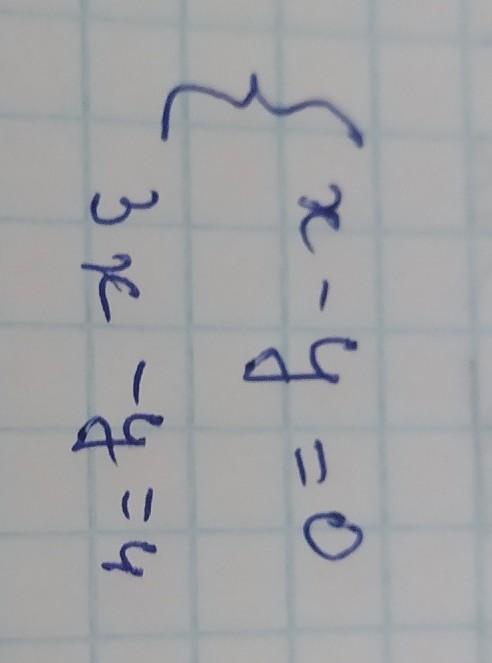 x - y = 0
3x - y = 4